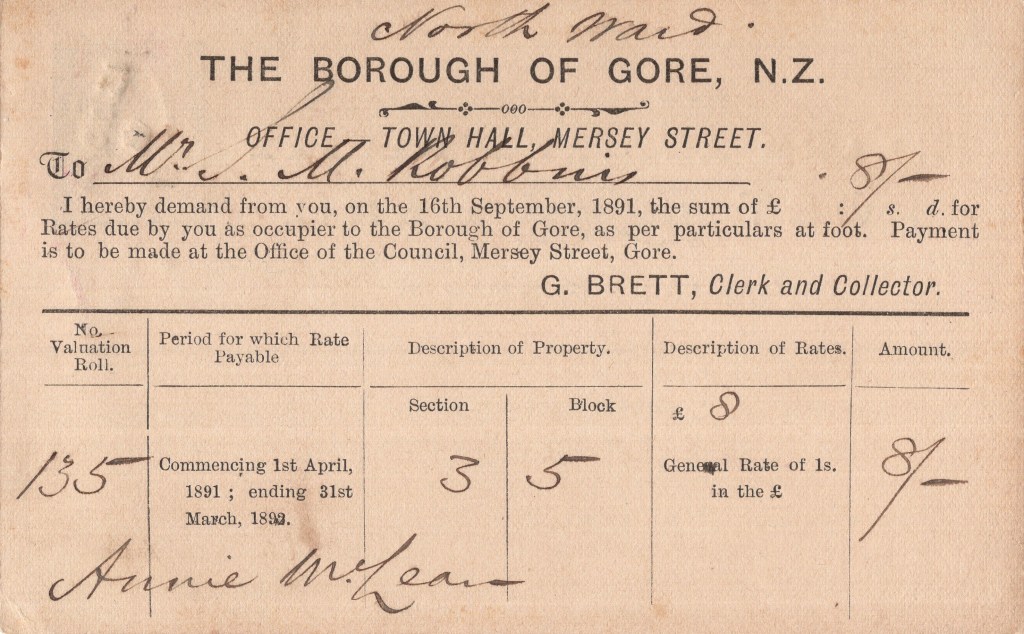 North Ward.
THE BOROUGH OF GORE, N.Z.
OFFICE TOWN HALL, MERSEY STREET.
To Mr. S. M. Robbins 8/-
I hereby demand from you, on the 16th September, 1891, the sum of £ : s. d. for
Rates due by you as occupier to the Borough of Gore, as per particulars at foot. Payment
is to be made at the Office of the Council, Mersey Street, Gore.
G. BRETT, Clerk and Collector.
No. Valuation Roll.
Period for which Rate Payable
Description of Property.
Description of Rates.
Amount.
Section
Block
£ 8
135
Commencing 1st April,
1891 ; ending 31st
March, 1892.
3
5
General Rate of 1s.
in the £
8/-
Annie McLean